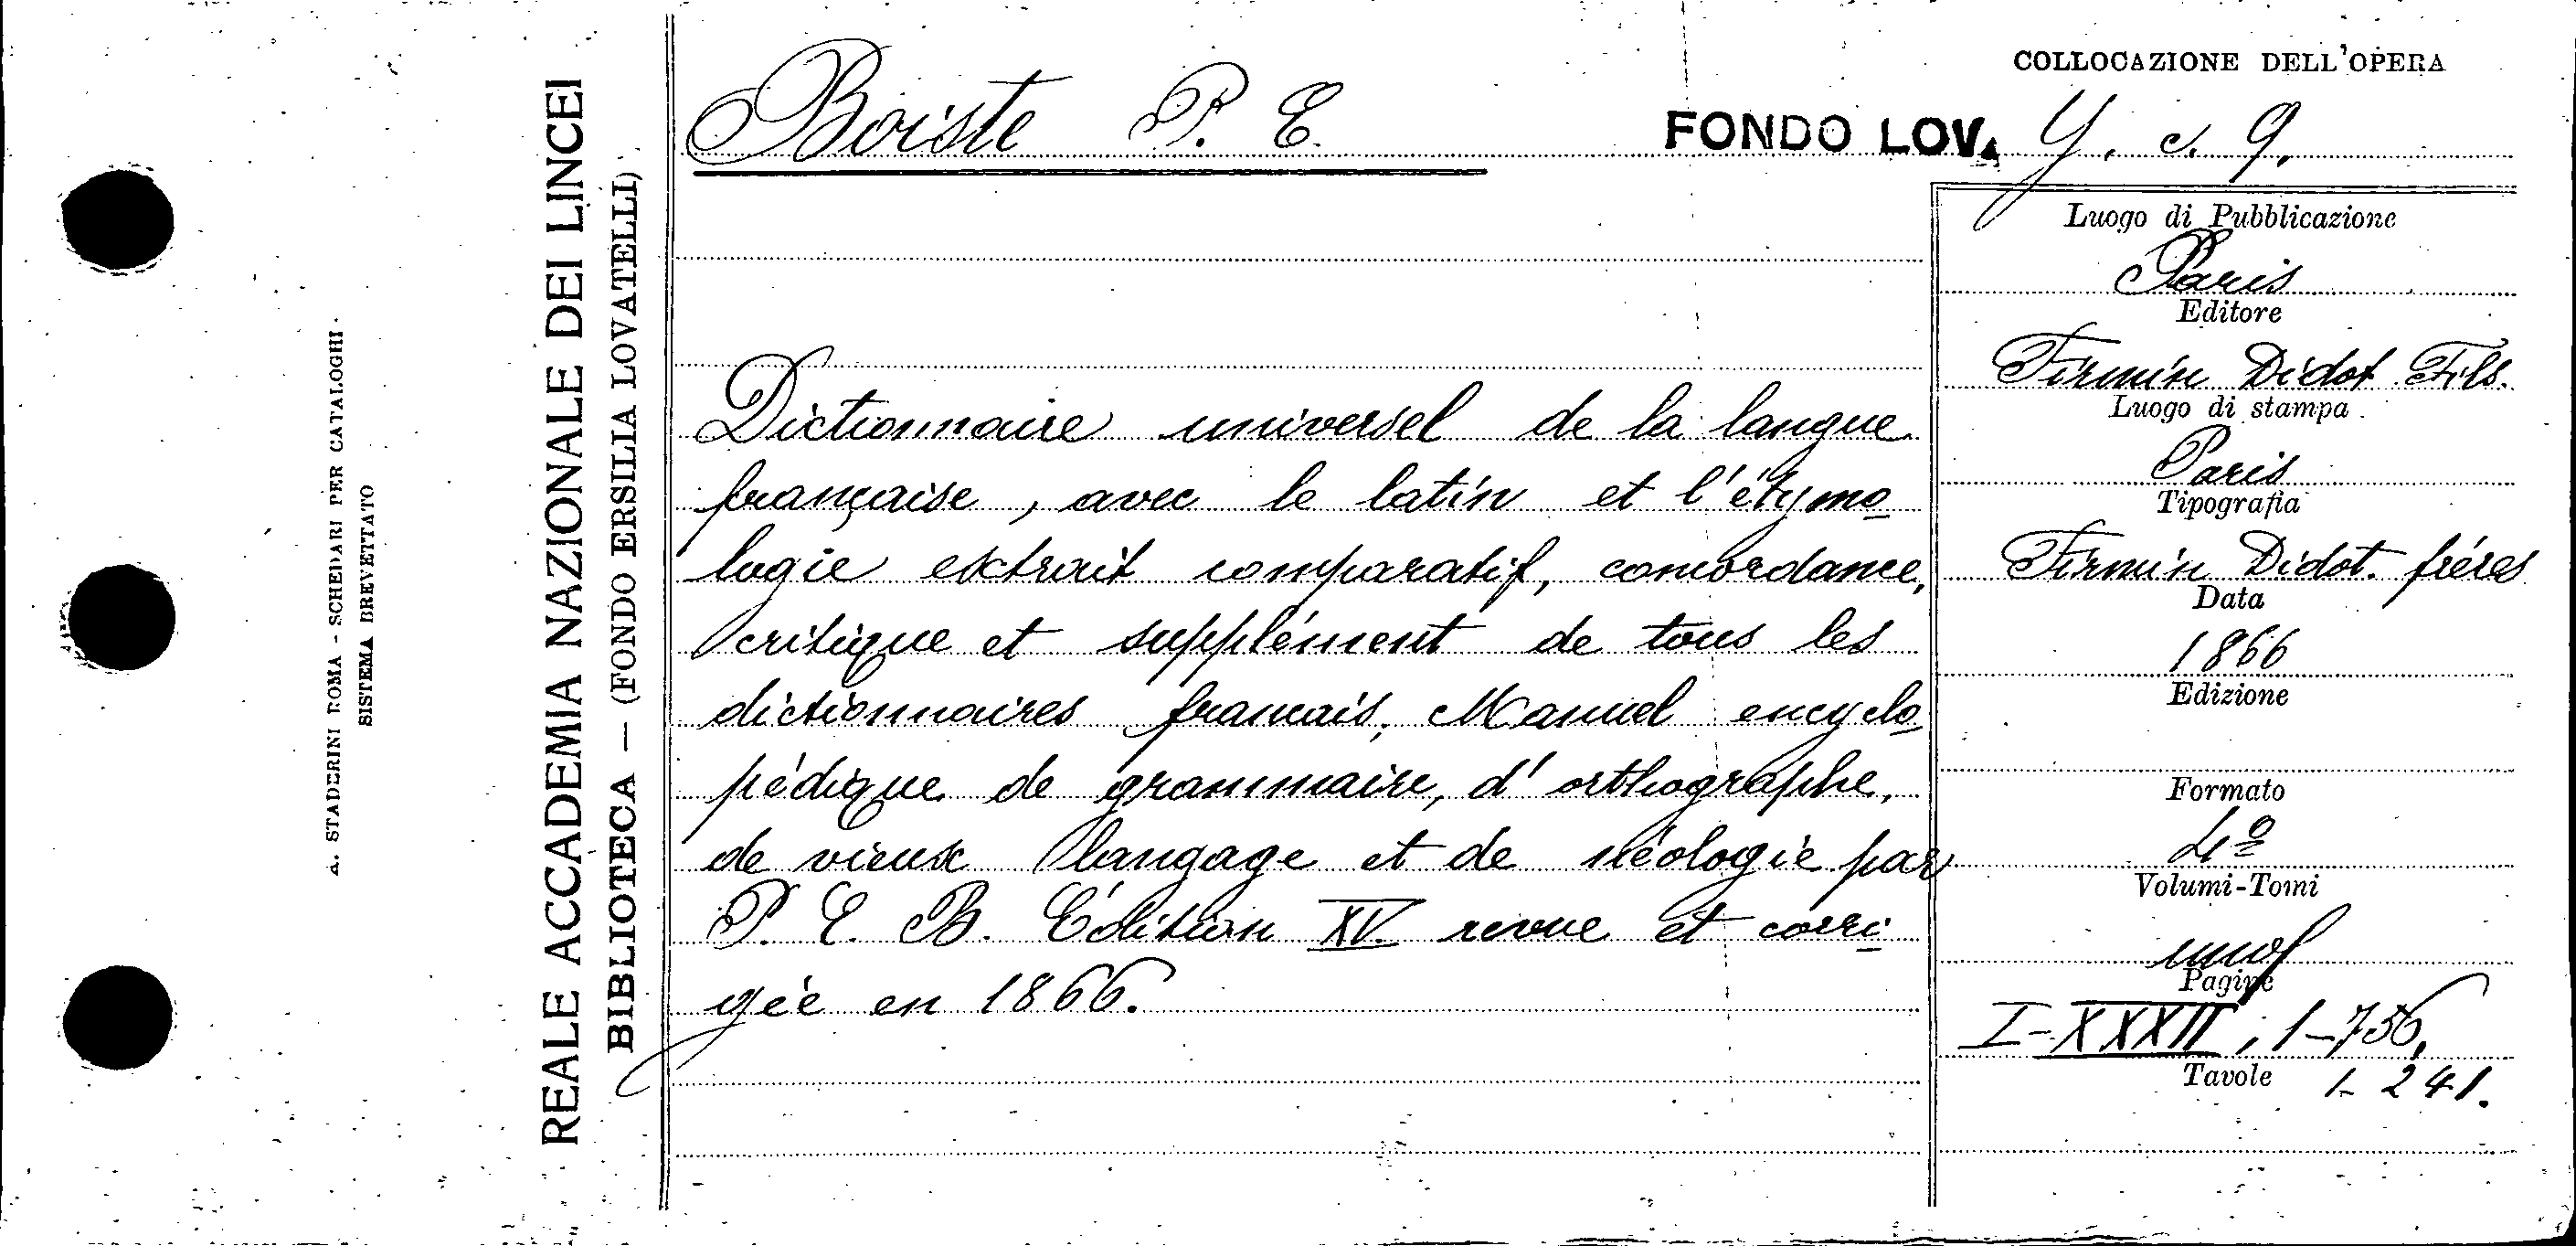 A. STADERINI ROMA - SCHEDARI PER CATALOGHI
SISTEMA BREVETTATO
REALE ACCADEMIA NAZIONALE DEI LINCEI
BIBLIOTECA — (FONDO ERSILIA LOVATELLI)
Boiste P. E.
COLLOCAZIONE DELL'OPERA
FONDO LOV. Y. c. 9.
Dictionnaire universel de la langue
française, avec le latin et l'étymo
logie extrait comparatif, concordance,
critique et supplément de tous les
dictionnaires francais, Manuel encyclo
pédique de grammaire, d'orthographe,
de vieux langage et de néologie par
P. E. B. Édition XV. revue et corri
gée en 1866.
Luogo di Pubblicazione
Paris
Editore
Firmin Didot Fils.
Luogo di stampa
Paris
Tipografia
Firmin Didot. fréres
Data
1866
Edizione
Formato
4º
Volumi-Tomi
uno
Pagine
I-XXXII; 1-756,
1-241.
Tavole